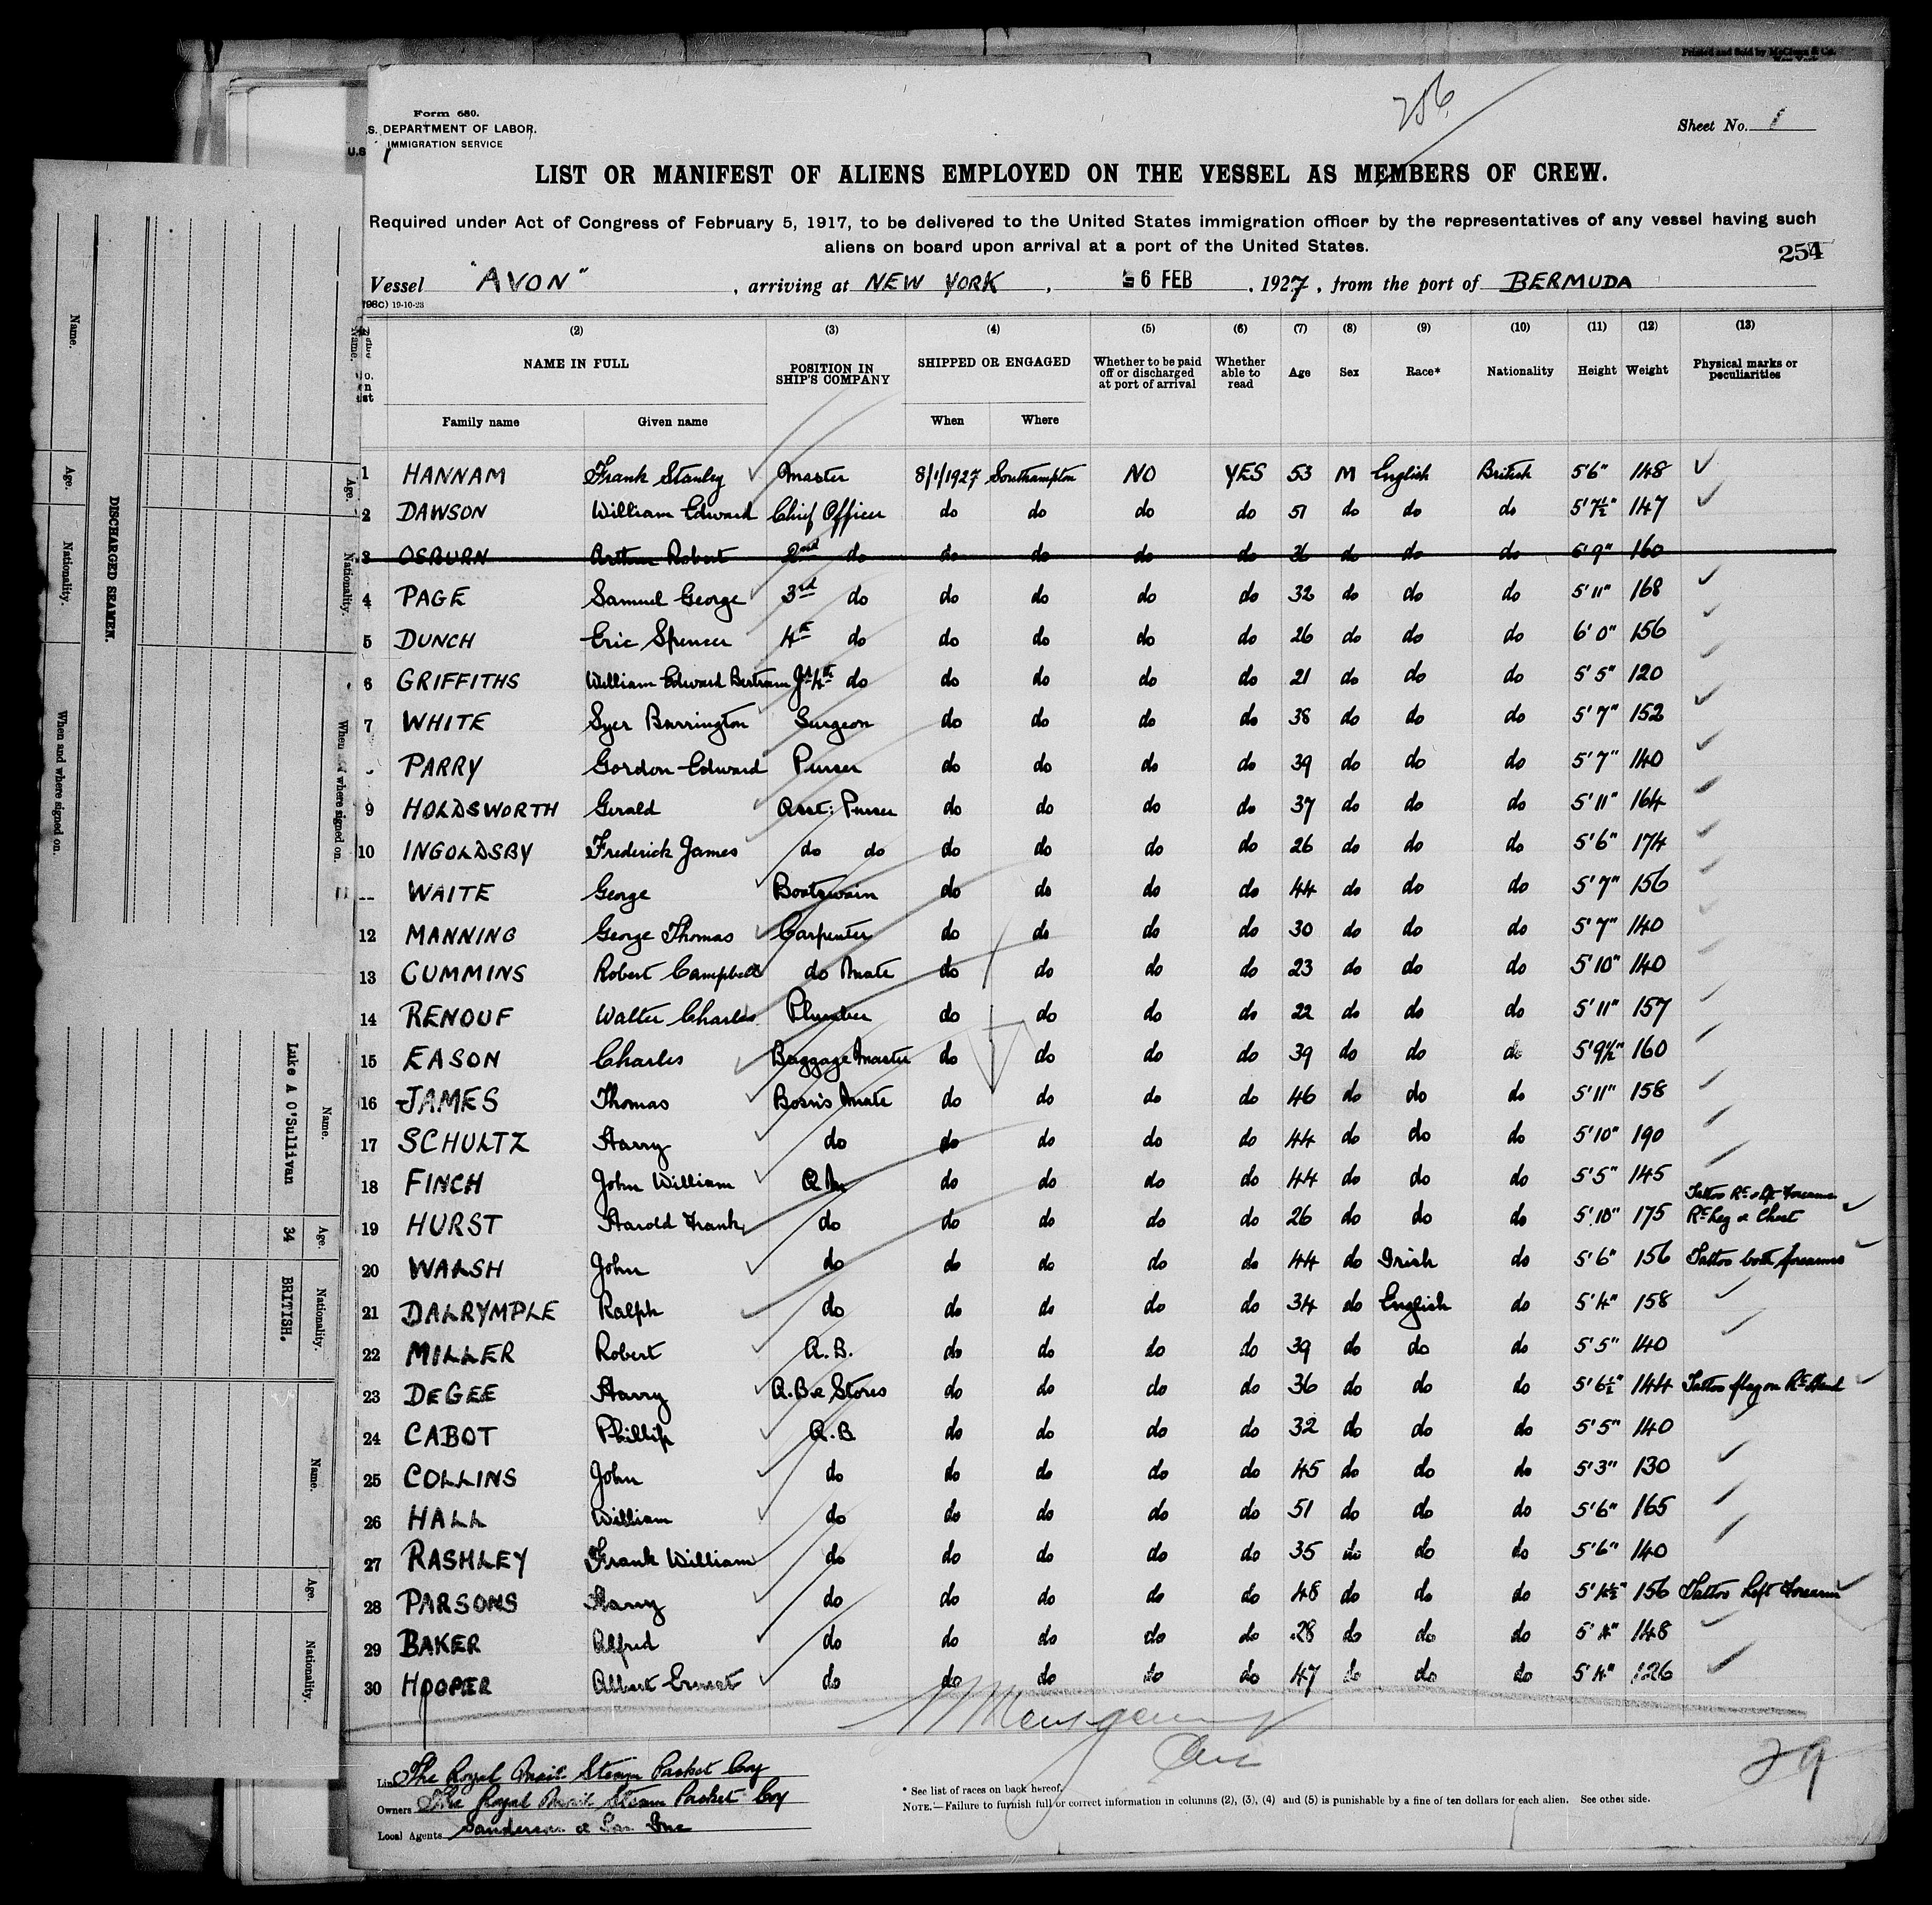 Printed and Sold by McClunn & Co.
Form 680.
U.S. DEPARTMENT OF LABOR.
IMMIGRATION SERVICE
256
Sheet No. 1
LIST OR MANIFEST OF ALIENS EMPLOYED ON THE VESSEL AS MEMBERS OF CREW.
Required under Act of Congress of February 5, 1917, to be delivered to the United States immigration officer by the representatives of any vessel having such
aliens on board upon arrival at a port of the United States.
254
Vessel "AVON", arriving at NEW YORK, 6 FEB, 1927, from the port of BERMUDA
19-10-23
(2) (3) (4) (5) (6) (7) (8) (9) (10) (11) (12) (13)
NAME IN FULL POSITION IN SHIP'S COMPANY SHIPPED OR ENGAGED Whether to be paid off or discharged at port of arrival Whether able to read Age Sex Race* Nationality Height Weight Physical marks or peculiarities
Family name Given name When Where
1 HANNAM Frank Stanley Master 8/1/1927 Southampton NO YES 53 M English British 5'6" 148
2 DAWSON William Edward Chief Officer do do do do 51 do do do 5'7½" 147
3 OSBURN Arthur Robert 2nd do do do do do 36 do do do 5'9" 160
4 PAGE Samuel George 3rd do do do do do 32 do do do 5'11" 168
5 DUNCH Eric Spencer 4th do do do do do 26 do do do 6'0" 156
6 GRIFFITHS William Edward Bertram Jr 4th do do do do do 21 do do do 5'5" 120
7 WHITE Syer Barrington Surgeon do do do do 38 do do do 5'7" 152
PARRY Gordon Edward Purser do do do do 39 do do do 5'7" 140
9 HOLDSWORTH Gerald Asst: Purser do do do do 37 do do do 5'11" 164
10 INGOLDSBY Frederick James do do do do do do 26 do do do 5'6" 174
WAITE George Boatswain do do do do 44 do do do 5'7" 156
12 MANNING George Thomas Carpenter do do do do 30 do do do 5'7" 140
13 CUMMINS Robert Campbell do Mate do do do do 23 do do do 5'10" 140
14 RENOUF Walter Charles Plumber do do do do 22 do do do 5'11" 157
15 EASON Charles Baggage Master do do do do 39 do do do 5'9½" 160
16 JAMES Thomas Bosn's Mate do do do do 46 do do do 5'11" 158
17 SCHULTZ Harry do do do do do 44 do do do 5'10" 190
18 FINCH John William Q.M. do do do do 44 do do do 5'5" 145
19 HURST Harold Frank do do do do do 26 do do do 5'10" 175 Tattoo Rt & Lft Forearms Rt Leg & Chest
20 WALSH John do do do do do 44 do Irish do 5'6" 156 Tattoo both forearms
21 DALRYMPLE Ralph do do do do do 34 do English do 5'4" 158
22 MILLER Robert A.B. do do do do 39 do do do 5'5" 140
23 DEGEE Harry A.B & Stores do do do do 36 do do do 5'6½" 144 Tattoo flag on Rt Hand
24 CABOT Phillip A.B do do do do 32 do do do 5'5" 140
25 COLLINS John do do do do do 45 do do do 5'3" 130
26 HALL William do do do do do 51 do do do 5'6" 165
27 RASHLEY Frank William do do do do do 35 do do do 5'6" 140
28 PARSONS Harry do do do do do 48 do do do 5'4½" 156 Tattoo Left Forearm
29 BAKER Alfred do do do do do 28 do do do 5'4" 148
30 HOOPER Albert Ernest do do do do do 47 do do do 5'4" 126
29
Line The Royal Mail Steam Packet Coy
Owners The Royal Mail Steam Packet Coy
Local Agents Sanderson & Son Inc
* See list of races on back hereof.
NOTE.—Failure to furnish full or correct information in columns (2), (3), (4) and (5) is punishable by a fine of ten dollars for each alien. See other side.
DISCHARGED SEAMEN.
Name. Age. Nationality. When and where signed on.
Name. Age. Nationality. When and where signed on.
Name. Age. Nationality.
Luke A O'Sullivan 34 BRITISH.
Name. Age. Nationality.